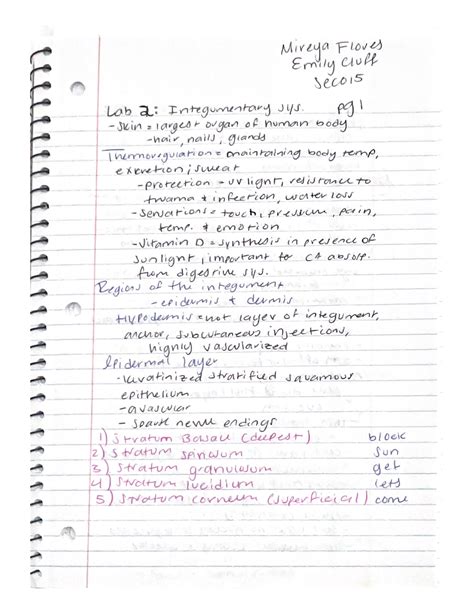 Mireya Flores
Emily Cluff
Sec015
Lab 2: Integumentary sys. pg 1
-Skin = largest organ of human body
-hair, nails, glands
Thermoregulation = maintaining body temp,
excretion; sweat
-protection = UV light, resistance to
trauma & infection, water loss
-Sensations = touch, pressure, pain,
temp. & emotion
-Vitamin D = synthesis in presence of
sunlight, important to CA absorp.
from digestive sys.
Regions of the integument
-epidermis & dermis
Hypodermis = not layer of integument,
anchor, subcutaneous injections,
highly vascularized
Epidermal layer
-keratinized stratified squamous
epithelium
-avascular
- sparce nerve endings
1) Stratum Basale (deepest) block
2) Stratum spinosum sun
3) Stratum granulosum get
4) Stratum lucidium lets
5) Stratum corneum (superficial) come